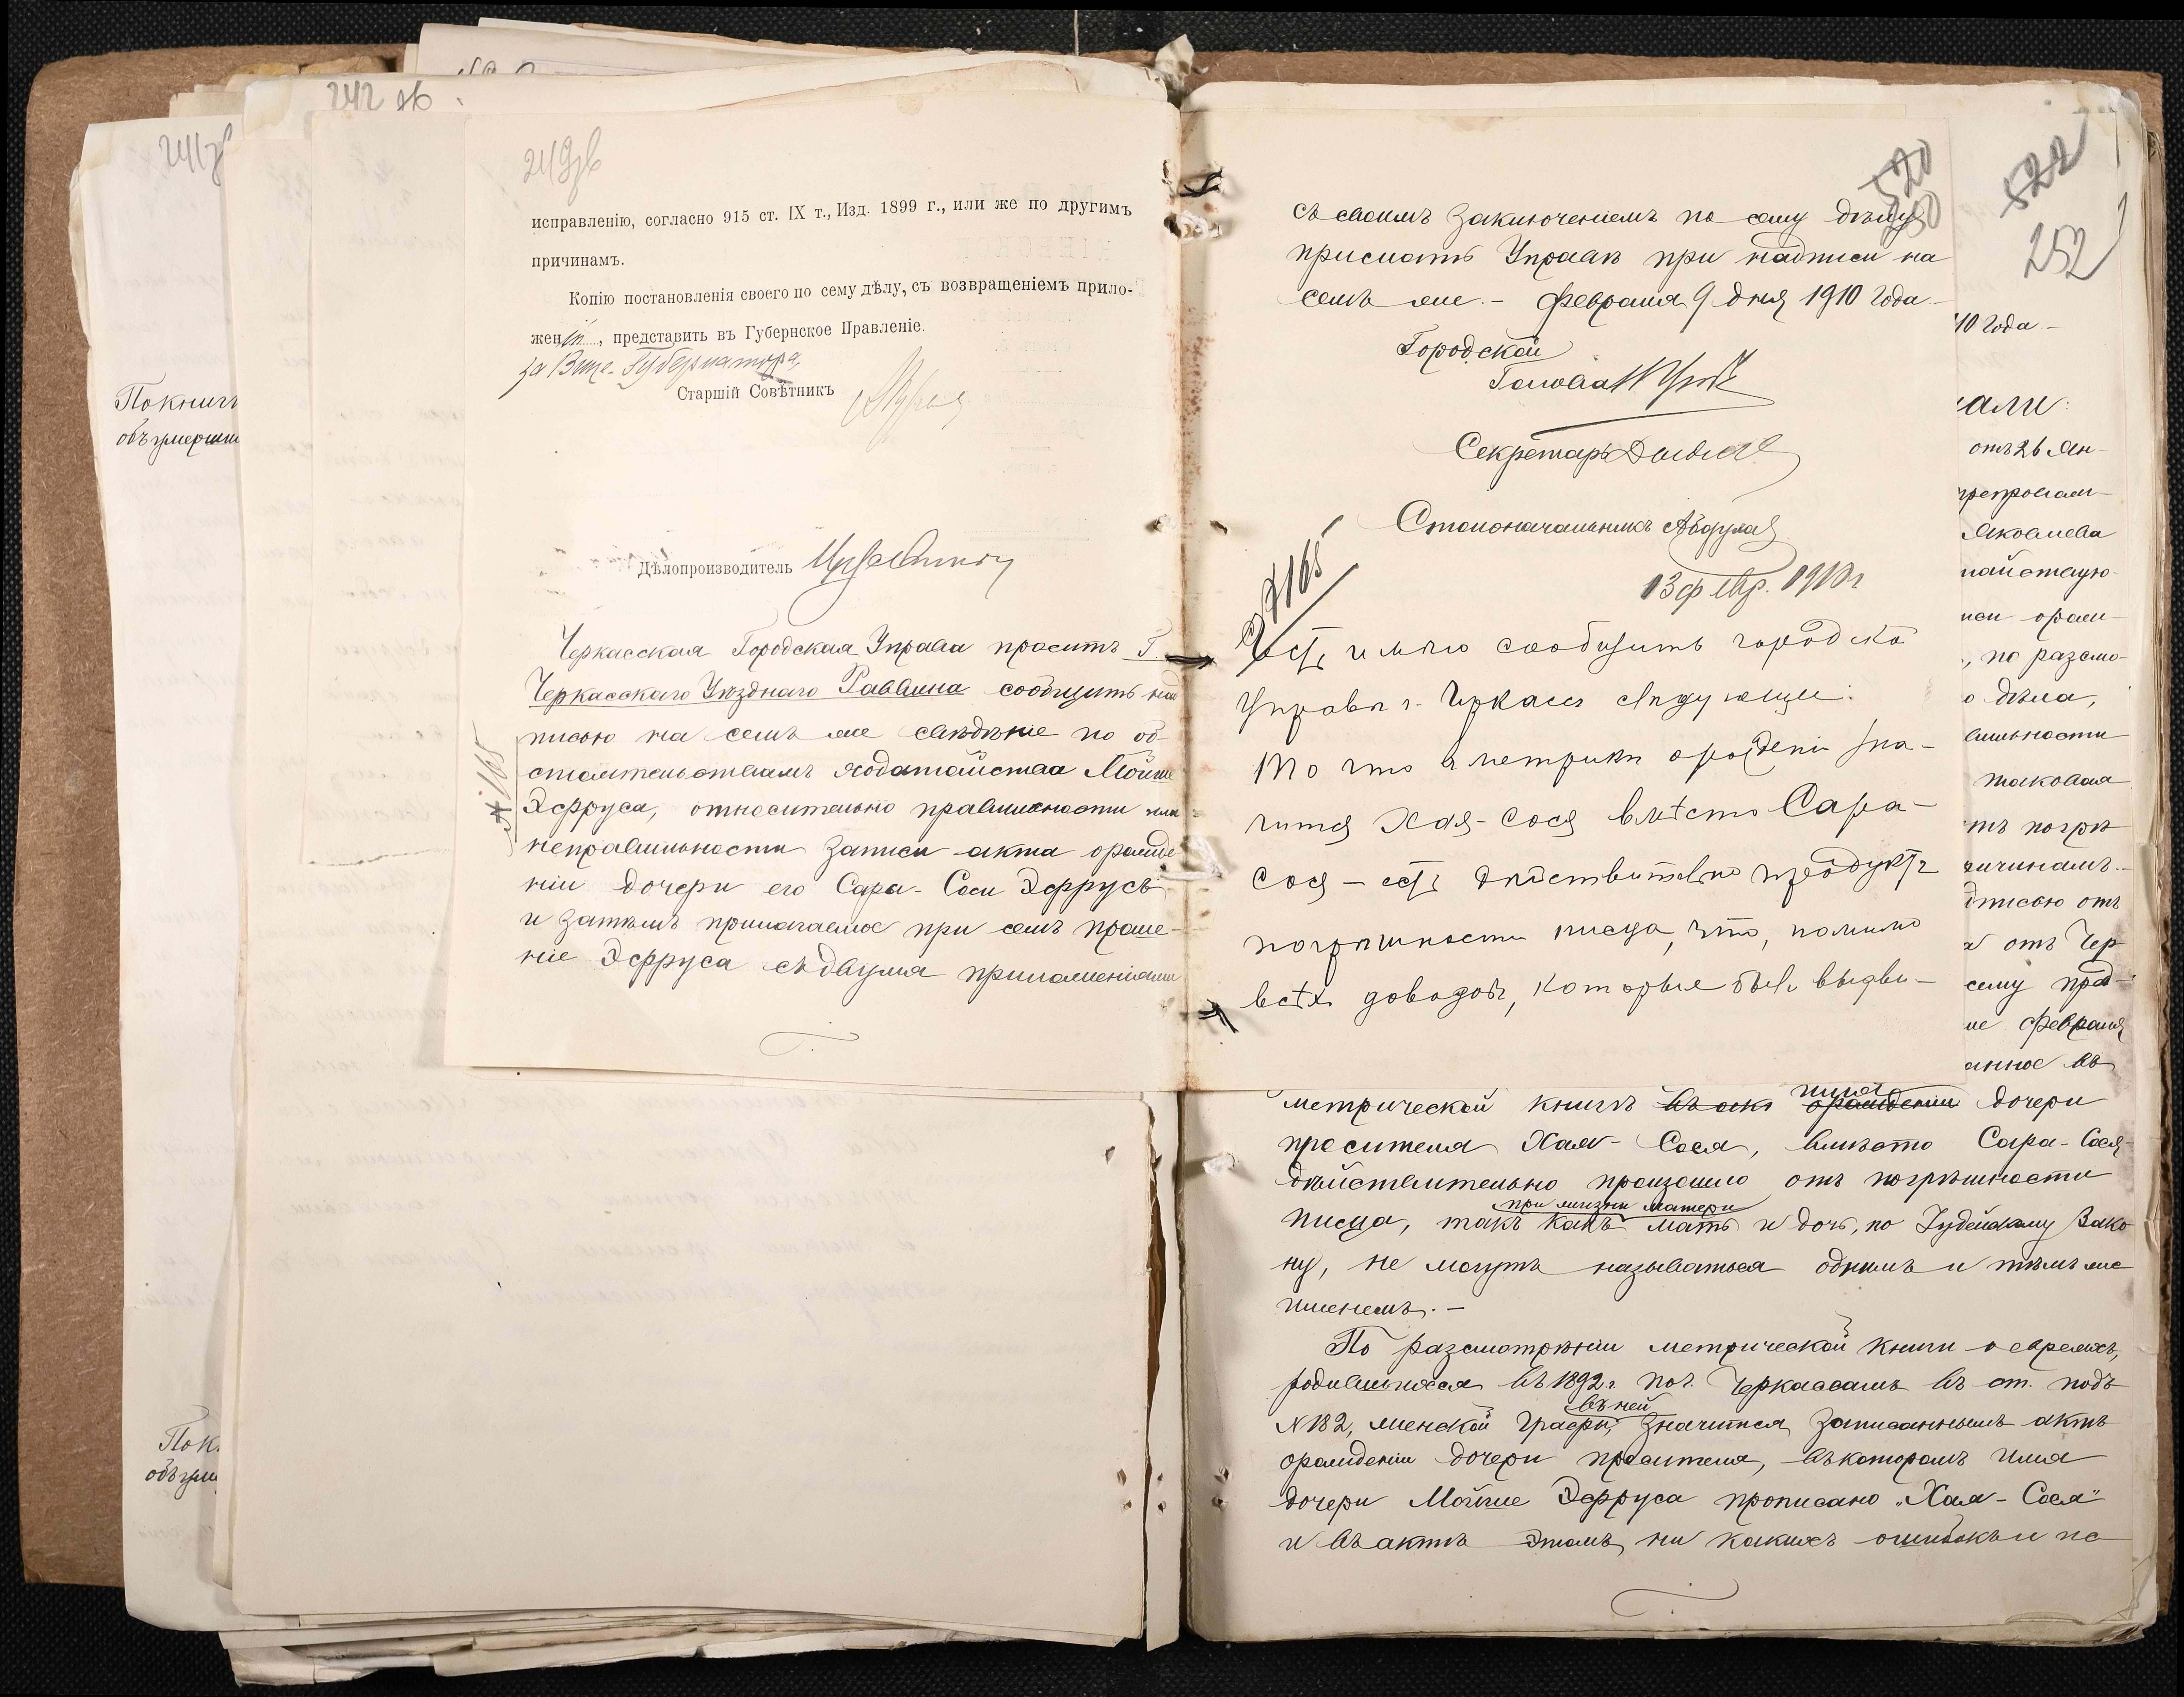 242 об
249 об
исправленію, согласно 915 ст. IX т., Изд. 1899 г., или же по другимъ
причинамъ.
Копію постановленія своего по сему дѣлу, съ возвращеніемъ прило-
жен, представить въ Губернское Правленіе.
за Вице-Губернатора,
Старшій Совѣтникъ
Дѣлопроизводитель
Черкасская Городская Управа проситъ Г.
Черкасскаго Уѣзднаго Раввина сообщить над
писью на семъ же свѣдѣніе по об-
стоятельствамъ ходатайства Мойше
Эфруса, относительно правильности или
неправильности записи акта о рожде
ніи дочери его Сара-Соси Эфрусъ
и затѣмъ прилагаемое при семъ проше-
ніе Эфруса съ двумя приложеніями
№ 165
По книгѣ
объ умерши
Пок
объ уме
520
250
съ своимъ заключеніемъ по сему дѣлу
прислать Управѣ при надписи на
семъ же. – Февраля 9 дня 1910 года.
Городской
Голова
Секретарь
Столоначальникъ
13 февр. 1910 г
№ 165
Честь имѣю сообщить городской
Управѣ г. Черкассъ слѣдующее:
То что въ метрикѣ о рожденіи зна-
чится Хая-Сося вмѣсто Сара-
Сося – есть дѣйствительно продуктъ
погрѣшности писца, что, помимо
всѣхъ доводовъ, которые были выдви-
522
252
10 года –
али:
отъ 26 Ян-
препровож-
Яковлева
датайствую-
иси о рож-
, по разсмо-
о дѣла,
вильности
таковая
тъ погрѣ
ричинамъ. –
дписью отъ
отъ Чер
сему пред-
же Февраля
анное въ
метрической книгѣ имя дочери
просителя Хая-Сося, вмѣсто Сара-Сося
дѣйствительно произошло отъ погрѣшности
при жизни матери
писца, такъ какъ мать и дочь, по Іудейскому Зако
ну, не могутъ называться однимъ и тѣмъ же
именемъ. –
По разсмотрѣніи метрической книги о евреяхъ,
родившихся въ 1892 г. по г. Черкассамъ въ ст. подъ
въ ней
№ 182, женской графы, значится записаннымъ актъ
о рожденіи дочери просителя, въ которомъ имя
дочери Мойше Эфруса прописано „Хая-Сося"
и въ актѣ этомъ ни какихъ ошибокъ и по